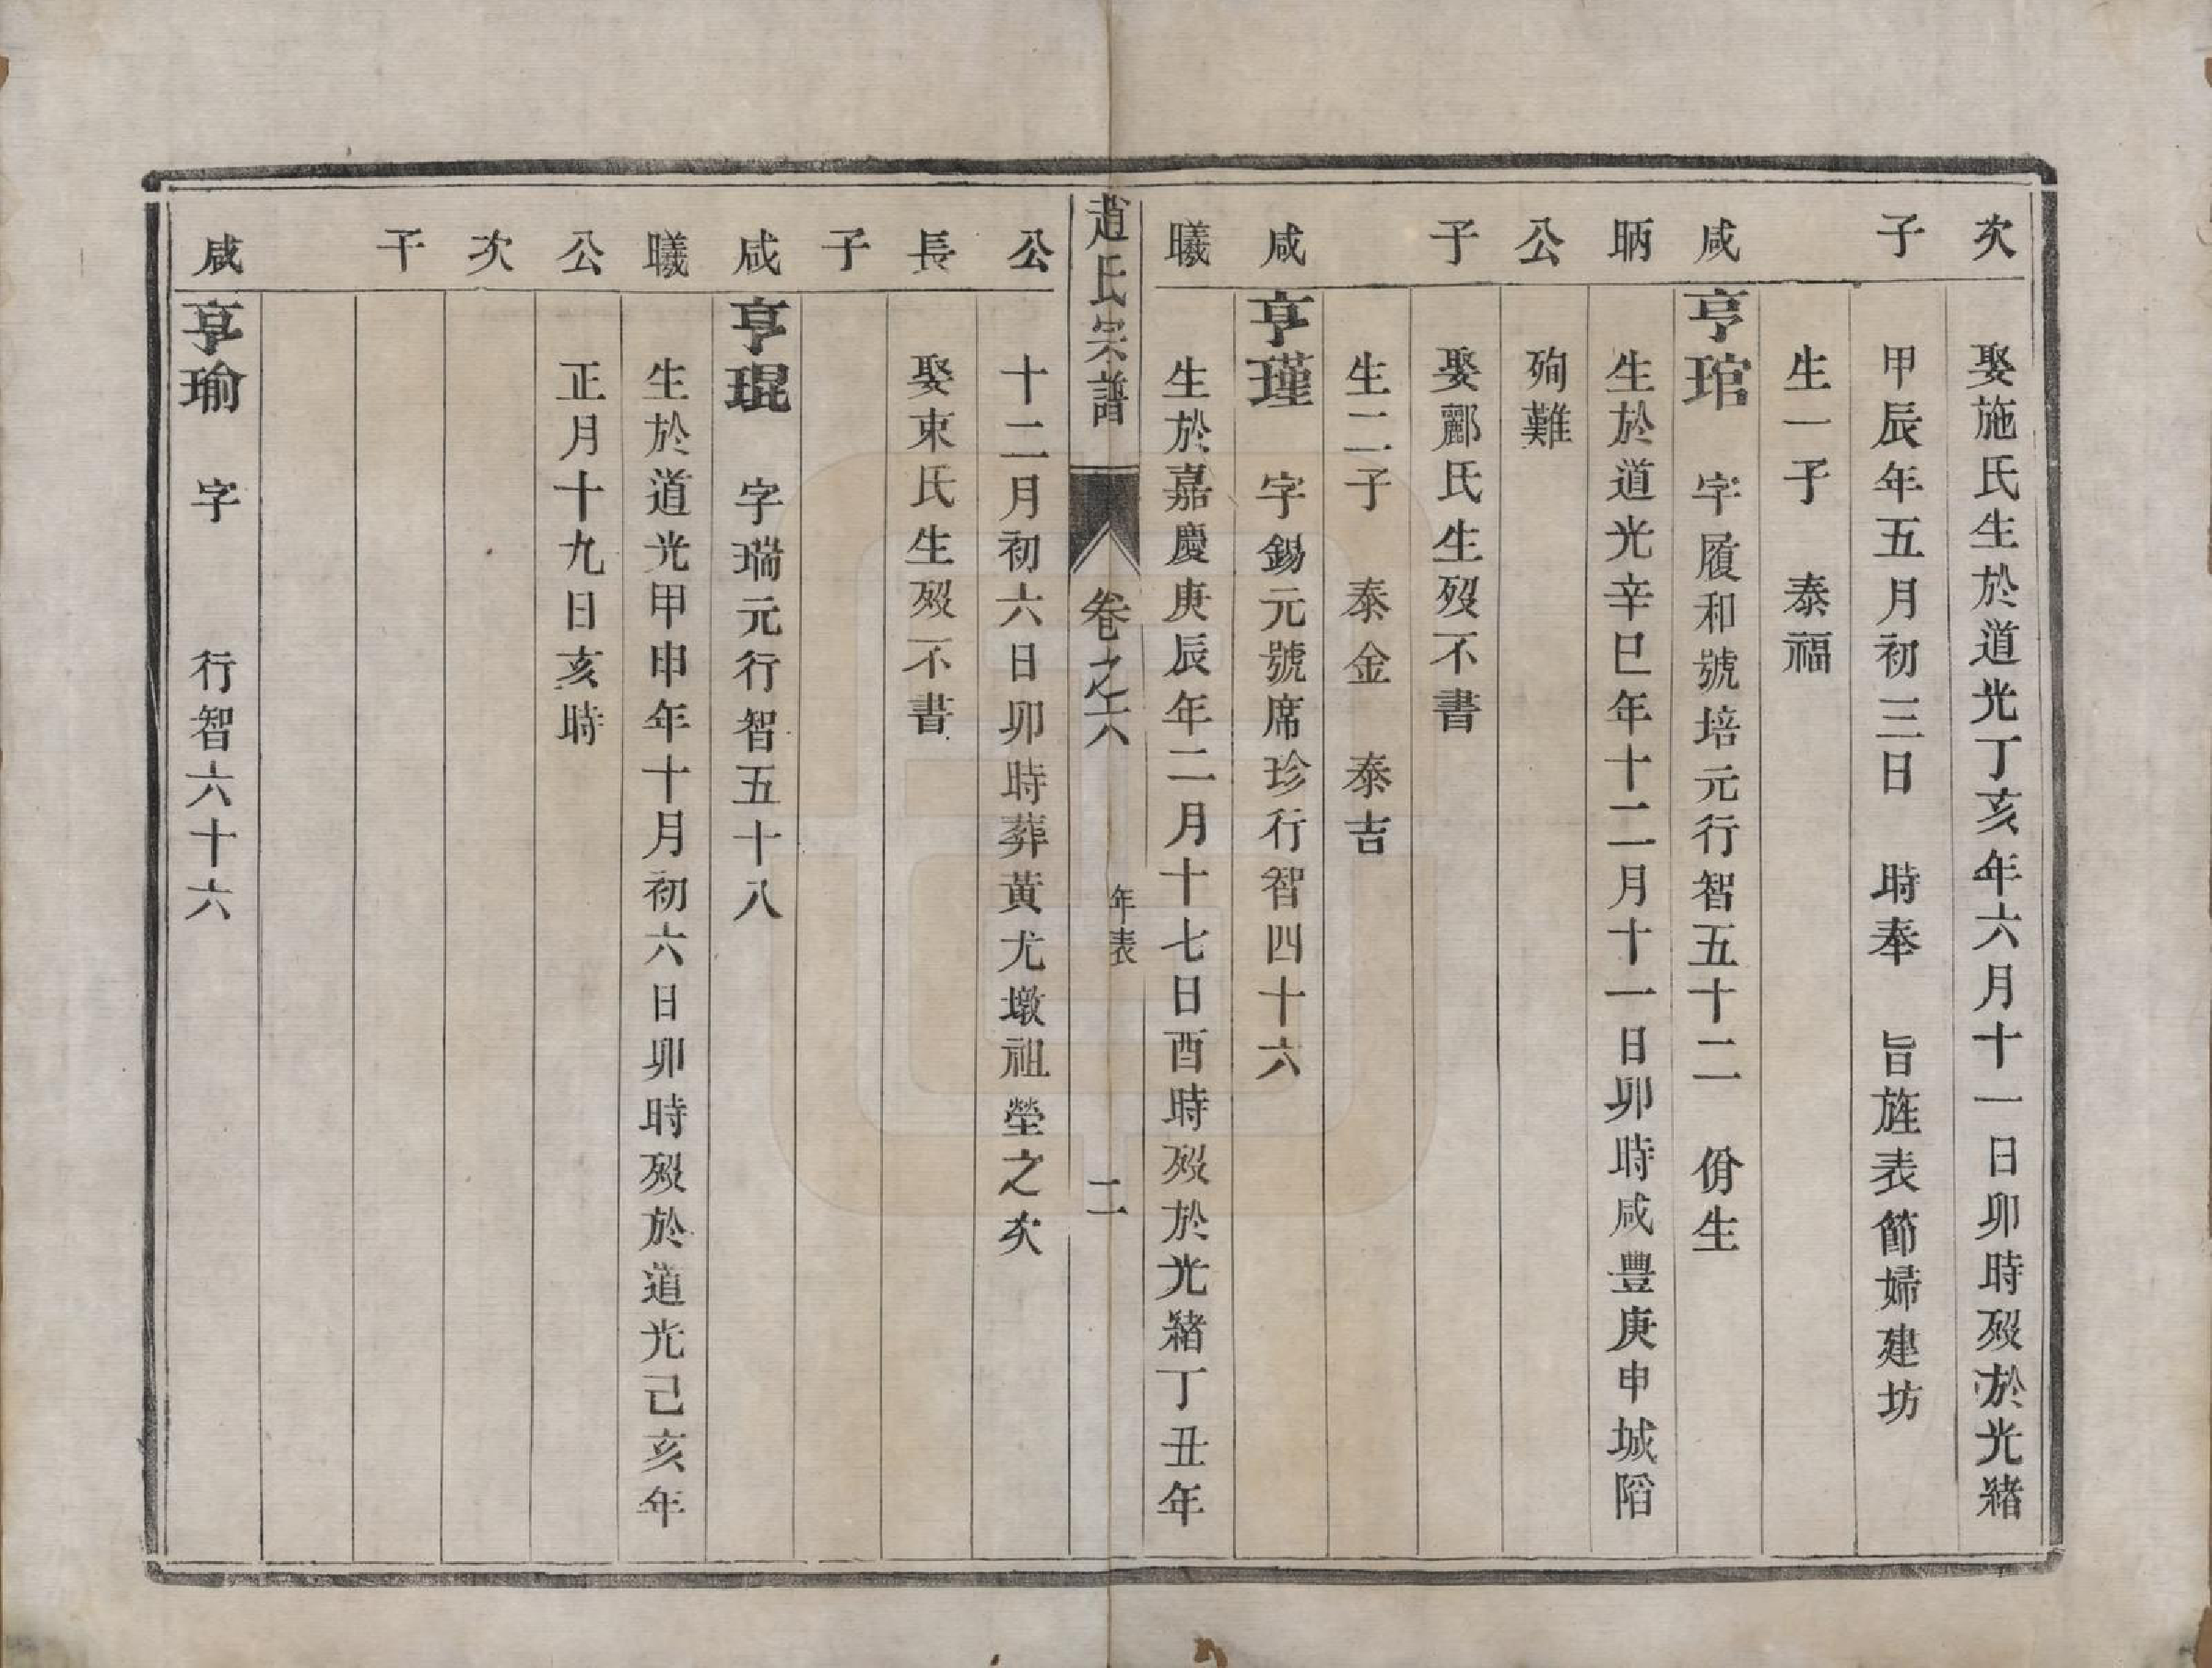 次 娶施氏生於道光丁亥年六月十一日卯時殁於光緒
子 甲辰年五月初三日 時奉 旨旌表節婦建坊
生一子 泰福
咸 亨琯 字履和號培元行智五十二 佾生
昞 生於道光辛巳年十二月十一日卯時咸豐庚申城陷
公 殉難
子 娶酈氏生殁不書
生二子 泰金 泰吉
咸 亨瑾 字錫元號席珍行智四十六
曦 生於嘉慶庚辰年二月十七日酉時殁於光緒丁丑年
趙氏宗譜 卷之六 年表 二
公 十二月初六日卯時葬黃尤墩祖塋之次
長 娶束氏生殁不書
子
咸 亨琨 字瑞元行智五十八
曦 生於道光甲申年十月初六日卯時殁於道光己亥年
公 正月十九日亥時
次
子
咸 亨瑜 字 行智六十六